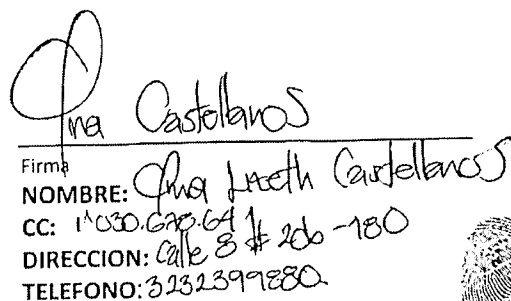 Ana Castellanos
Firma
NOMBRE: Ana Lizeth Castellanos
CC: 1'030.678.641
DIRECCION: Calle 8 # 20b -180
TELEFONO: 3232399880